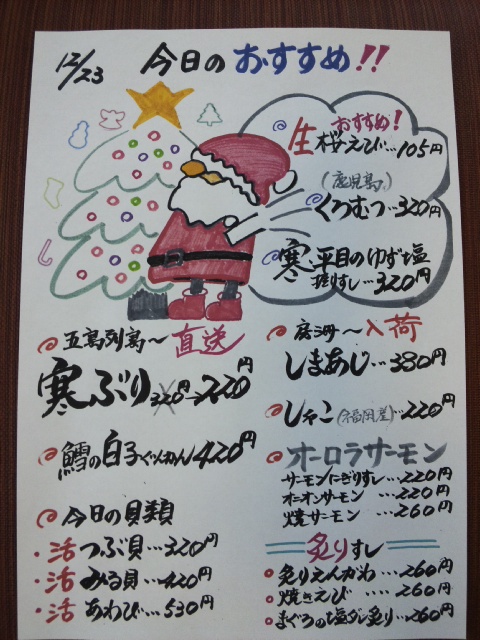 12/23 今日のおすすめ!!
おすすめ!
生桜えび…105円
(鹿児島)
くろむつ…320円
寒平目のゆず塩
握りすし…320円
五島列島〜直送
寒ぶり 320円→220円
鱈の白子ぐんかん 420円
今日の貝類
・活つぶ貝…320円
・活みる貝…420円
・活あわび…530円
房州〜入荷
しまあじ…380円
しゃこ(福岡産)…220円
オーロラサーモン
サーモンにぎりすし…220円
オニオンサーモン…220円
焼サーモン…260円
炙りすし
炙りえんがわ…260円
焼きえび…260円
まぐろの塩ダレ炙り…260円